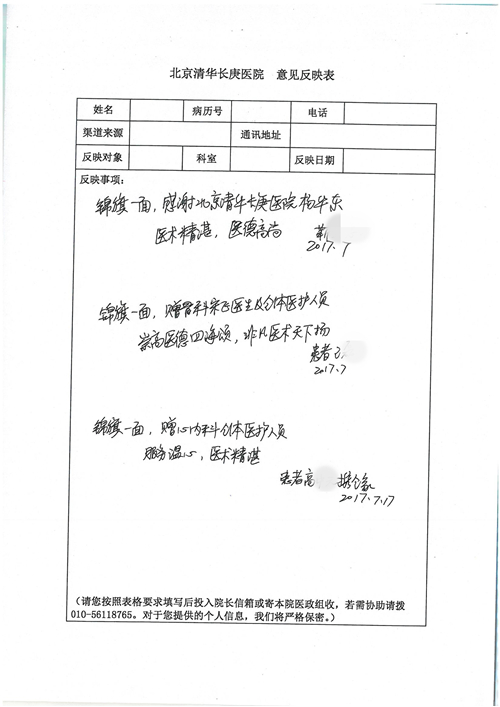 北京清华长庚医院 意见反映表
姓名 病历号 电话
渠道来源 通讯地址
反映对象 科室 反映日期
反映事项:
锦旗一面，感谢北京清华长庚医院杨华东
医术精湛，医德高尚
靳
2017.7
锦旗一面，赠骨科宋飞医生及全体医护人员
崇高医德四海颂，非凡医术天下扬
患者
2017.7
锦旗一面，赠心内科全体医护人员
服务温心，医术精湛
患者高 携全家
2017.7.17
(请您按照表格要求填写后投入院长信箱或寄本院医政组收，若需协助请拨
010-56118765。对于您提供的个人信息，我们将严格保密。)